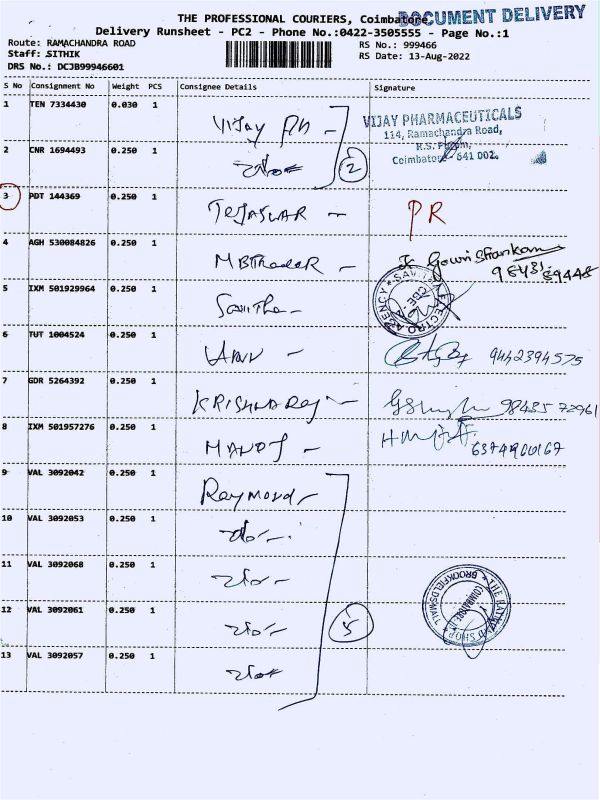 THE PROFESSIONAL COURIERS, Coimbatore
DOCUMENT DELIVERY
Delivery Runsheet - PC2 - Phone No.:0422-3505555 - Page No.:1
Route: RAMACHANDRA ROAD
Staff: SITHIK
DRS No.: DCJB99946601
RS No.: 999466
RS Date: 13-Aug-2022
S No Consignment No Weight PCS Consignee Details Signature
1 TEN 7334430 0.030 1 Vijay Ph -
VIJAY PHARMACEUTICALS
114, Ramachandra Road,
R.S. Puram,
Coimbatore 641 002.
2 CNR 1694493 0.250 1
2
3 PDT 144369 0.250 1 TEJASWAR - PR
4 AGH 530084826 0.250 1 MBTrader - Gowri Shankar
5 IXM 501929964 0.250 1 Savitha -
6 TUT 1004524 0.250 1 9442394575
7 GDR 5264392 0.250 1 KRISHNARAJ - 98435 72961
8 IXM 501957276 0.250 1 MANOJ - 6374900167
9 VAL 3092042 0.250 1 Raymond -
10 VAL 3092053 0.250 1
11 VAL 3092068 0.250 1
12 VAL 3092061 0.250 1
5
13 VAL 3092057 0.250 1